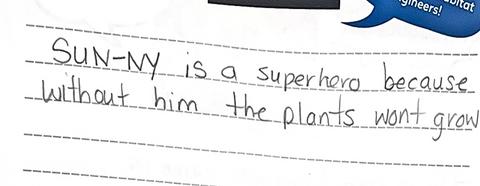 gineers!
SUN-NY is a superhero because
without him the plants wont grow